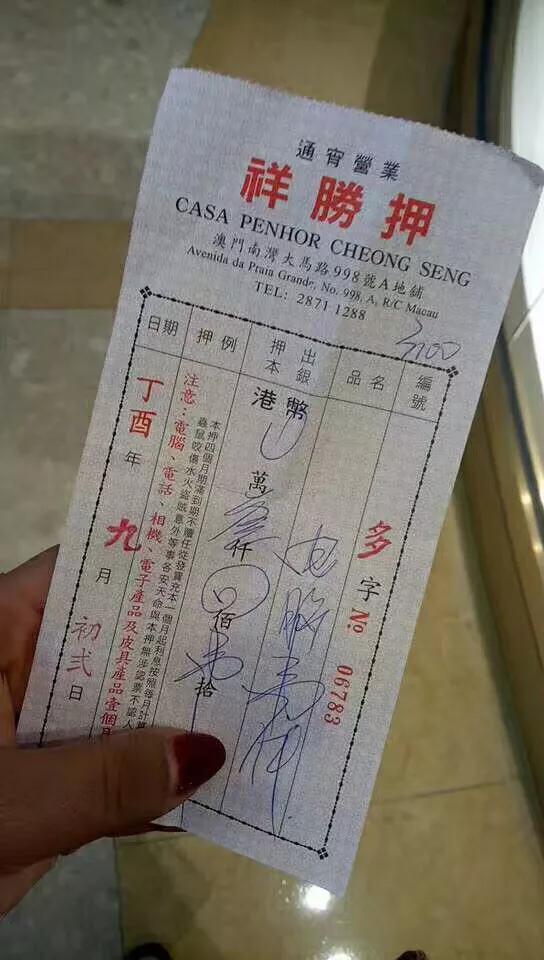 通宵營業
祥勝押
CASA PENHOR CHEONG SENG
澳門南灣大馬路998號A地鋪
Avenida da Praia Grande, No. 998, A, R/C Macau
TEL: 2871 1288
3100
編號
品名
押本
出銀
押例
日期
多字 No. 06783
電腦壹件
港幣
萬叁仟
佰
拾
本押四個月期滿到期不贖任從發賣充本一個月起利息按照每月計算
蟲鼠咬傷水火盜賊意外等事各安天命與本押無涉認票不認人
注意：電腦、電話、相機、電子產品及皮具產品壹個月
丁酉年九月初弍日